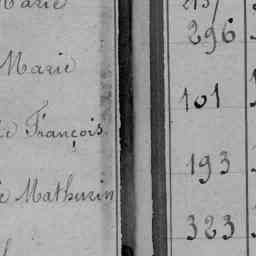 Marie
296
Marie
101
François
193
Mathurin
323